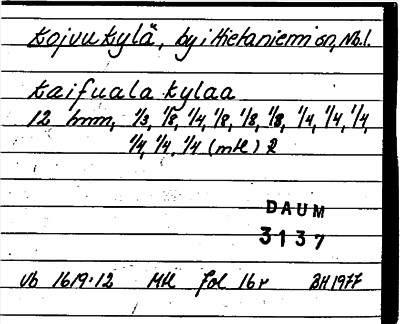 Koivukylä, by i Hietaniemi sn, Nb.l.
Kaifuala kylaa
12 bmn, 1/3, 1/8, 1/4, 1/8, 1/8, 1/8, 1/4, 1/4, 1/4,
1/4, 1/4, 1/4 (mtl) 2
DAUM
3137
Vb 1619:12 Mtl fol 16r BH 1977